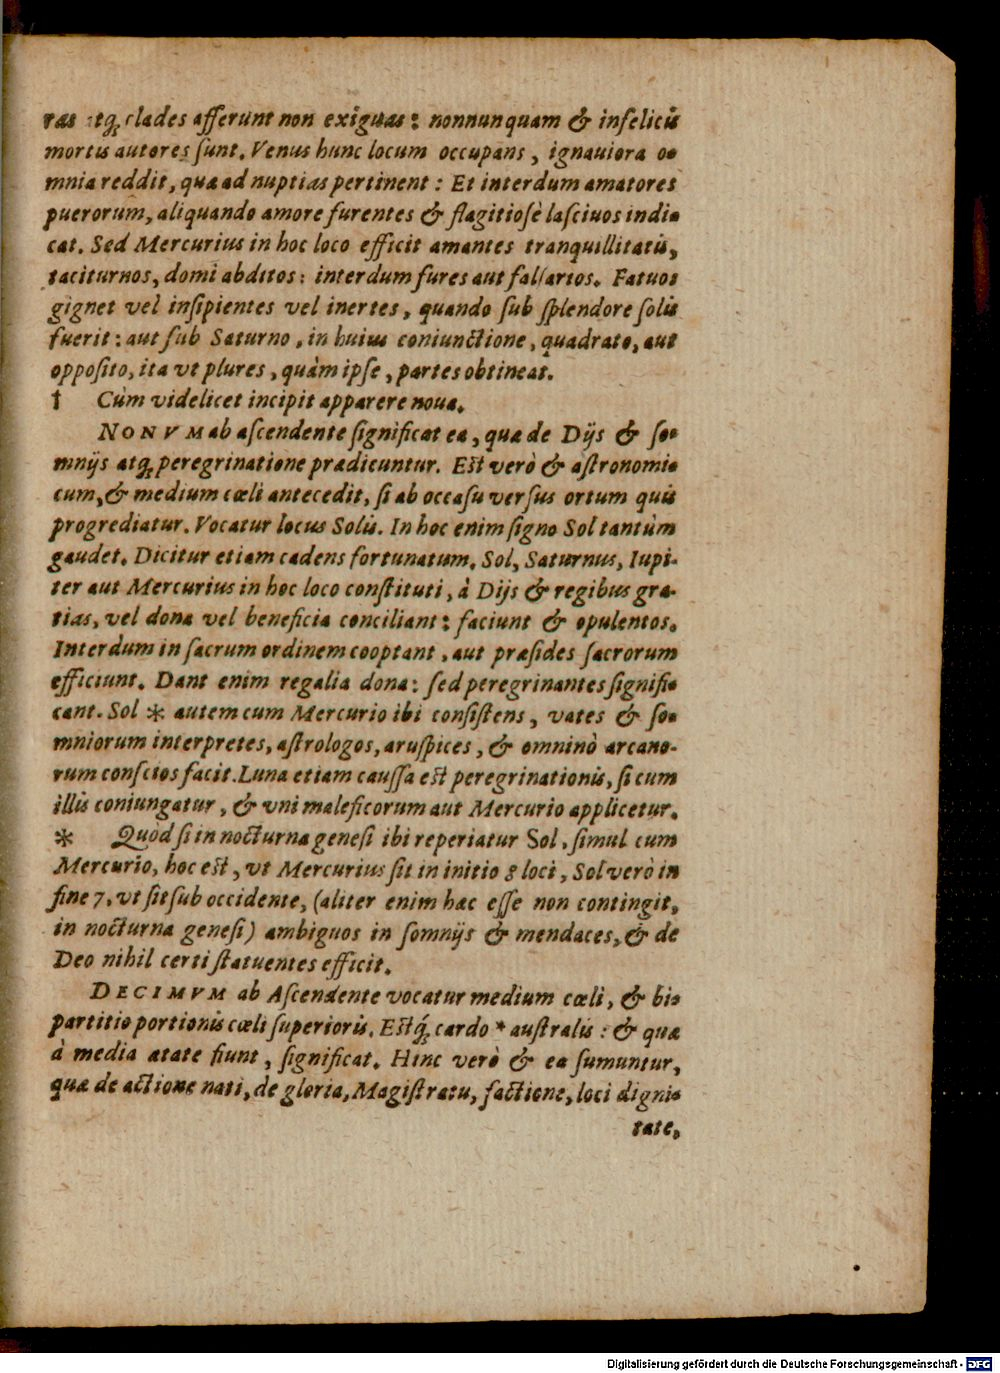 ras atq; clades afferunt non exiguas: nonnunquam & infelicis
mortis autores sunt. Venus hunc locum occupans, ignauiora o-
mnia reddit, quæ ad nuptias pertinent: Et interdum amatores
puerorum, aliquando amore furentes & flagitiosè lasciuos indi-
cat. Sed Mercurius in hoc loco efficit amantes tranquillitatis,
taciturnos, domi abditos: interdum fures aut falsarios. Fatuos
gignet vel insipientes vel inertes, quando sub splendore solis
fuerit: aut sub Saturno, in huius coniunctione, quadrato, aut
opposito, ita vt plures, quàm ipse, partes obtineat.
† Cùm videlicet incipit apparere noua.
NONVM ab ascendente significat ea, quæ de Dijs & so-
mnijs atq; peregrinatione prædicuntur. Est verò & astronomi-
cum, & medium cœli antecedit, si ab occasu versus ortum quis
progrediatur. Vocatur locus Solis. In hoc enim signo Sol tantùm
gaudet. Dicitur etiam cadens fortunatum. Sol, Saturnus, Iupi-
ter aut Mercurius in hoc loco constituti, à Dijs & regibus gra-
tias, vel dona vel beneficia conciliant: faciunt & opulentos.
Interdum in sacrum ordinem cooptant, aut præsides sacrorum
efficiunt. Dant enim regalia dona: sed peregrinantes signifi-
cant. Sol * autem cum Mercurio ibi consistens, vates & so-
mniorum interpretes, astrologos, aruspices, & omninò arcano-
rum conscios facit. Luna etiam caussa est peregrinationis, si cum
illis coniungatur, & vni maleficorum aut Mercurio applicetur.
* Quòd si in nocturna genesi ibi reperiatur Sol, simul cum
Mercurio, hoc est, vt Mercurius sit in initio 8 loci, Sol verò in
fine 7, vt sit sub occidente, (aliter enim hæc esse non contingit,
in nocturna genesi) ambiguos in somnijs & mendaces, & de
Deo nihil certi statuentes efficit.
DECIMVM ab Ascendente vocatur medium cœli, & bi-
partitio portionis cœli superioris. Estq́; cardo * australis: & quæ
à media ætate fiunt, significat. Hinc verò & ea sumuntur,
quæ de actione nati, de gloria, Magistratu, factione, loci digni-
tate,
Digitalisierung gefördert durch die Deutsche Forschungsgemeinschaft - DFG